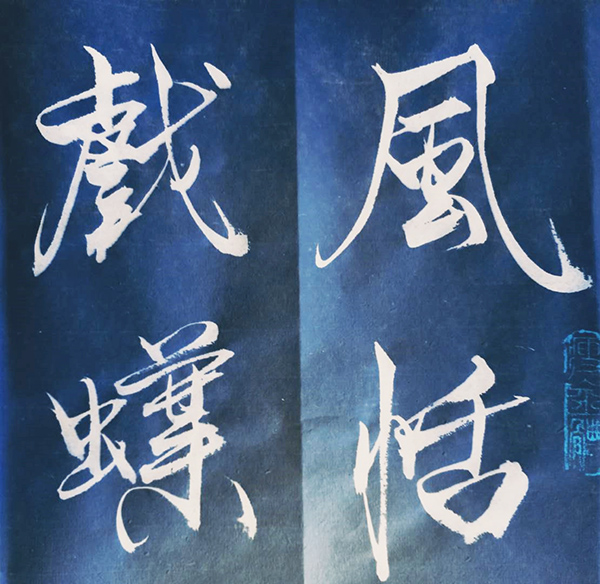 風恬
戲蝶